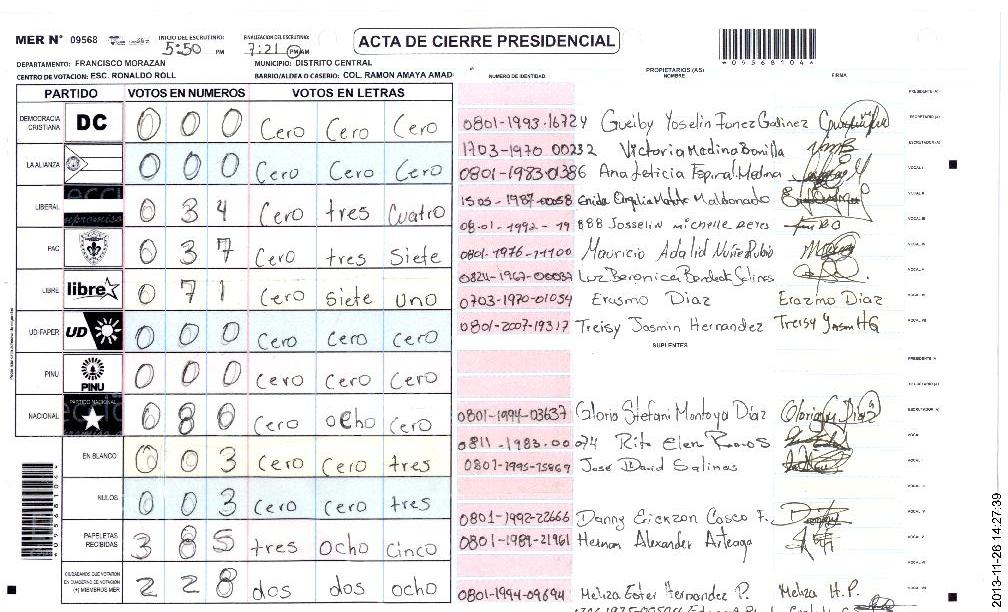 MER N° 09568
INICIO DEL ESCRUTINIO:
5:50 PM
FINALIZACION DEL ESCRUTINIO:
7:21 PM AM
ACTA DE CIERRE PRESIDENCIAL
*09568104*
DEPARTAMENTO: FRANCISCO MORAZAN
MUNICIPIO: DISTRITO CENTRAL
CENTRO DE VOTACION: ESC. RONALDO ROLL
BARRIO/ALDEA O CASERIO: COL. RAMON AMAYA AMAD
PARTIDO VOTOS EN NUMEROS VOTOS EN LETRAS
DEMOCRACIA CRISTIANA DC 0 0 0 Cero Cero Cero
LA ALIANZA 0 0 0 Cero Cero Cero
LIBERAL 0 3 4 Cero tres Cuatro
PAC 0 3 7 Cero tres Siete
LIBRE libre 0 7 1 Cero Siete uno
UD-FAPER UD 0 0 0 Cero Cero Cero
PINU PINU 0 0 0 Cero Cero Cero
NACIONAL PARTIDO NACIONAL 0 8 0 Cero ocho Cero
EN BLANCO 0 0 3 Cero Cero tres
NULOS 0 0 3 Cero Cero tres
PAPELETAS RECIBIDAS 3 8 5 tres Ocho Cinco
CIUDADANOS QUE VOTARON EN CUADERNO DE VOTACION (+) MIEMBROS MER 2 2 8 dos dos ocho
PROPIETARIOS (AS)
NUMERO DE IDENTIDAD NOMBRE FIRMA
PRESIDENTE (A)
0801-1993-16724 Gueiby Yoselin Funez Galinez
SECRETARIO (A)
1703-1970 00232 Victoria Medina Bonilla
ESCRUTADOR (A)
0801-1983-01386 Ana Leticia Espinal Medina
VOCAL I
1505-1987-0058 Maldonado
VOCAL II
08-01-1992-19 888 Josselin michelle reyes
VOCAL III
0801-1976-11100 Mauricio Adalid Nuñez Rubio
VOCAL IV
0824-1967-00087 Salinas
VOCAL V
0703-1970-01054 Erasmo Diaz Erazmo Diaz
VOCAL VI
0801-2007-19317 Treisy Jasmin Hernandez Treisy Yasm HG
VOCAL VII
SUPLENTES
PRESIDENTE (A)
SECRETARIO (A)
0801-1994-03637 Gloria Stefani Montoya Díaz
ESCRUTADOR (A)
0811-1983-00074 Rita Elen Ramos
VOCAL I
0801-1995-15869 José David Salinas
VOCAL II
VOCAL III
0801-1992-22666 Danny Erickzon Casco F.
VOCAL IV
0801-1989-21961 Hernan Alexander Arteaga
VOCAL V
VOCAL VI
0801-1994-09694 Meliza Ester Hernandez P. Meliza H.P.
VOCAL VII
*09568104*
2013-11-26 14:27:39